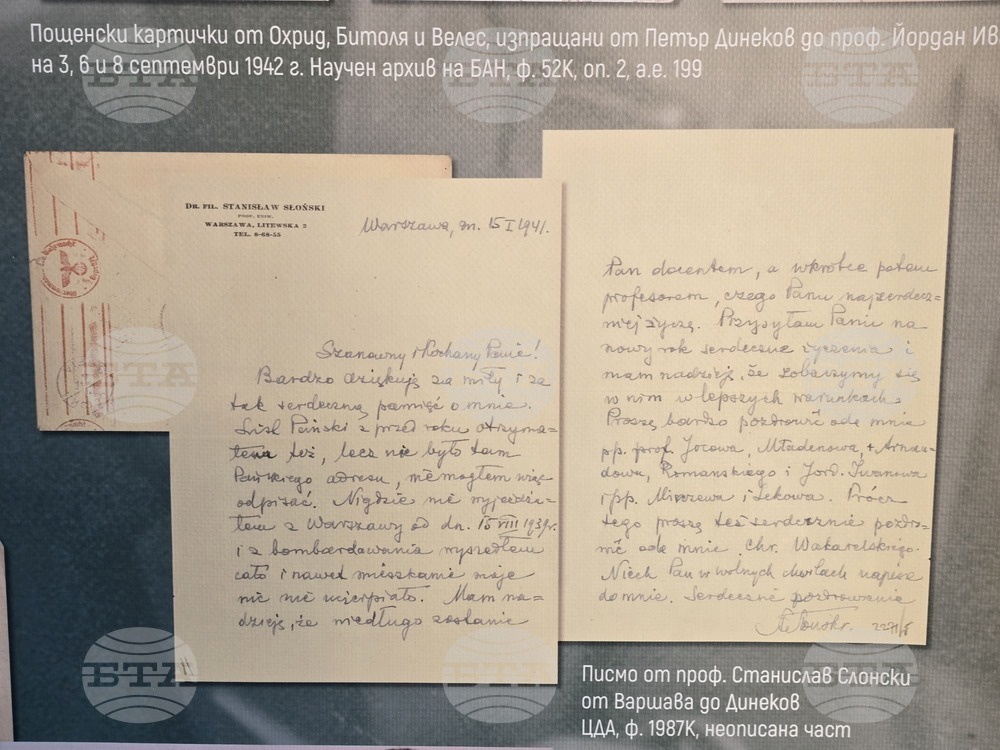 Пощенски картички от Охрид, Битоля и Велес, изпращани от Петър Динеков до проф. Йордан Ив
на 3, 6 и 8 септември 1942 г. Научен архив на БАН, ф. 52К, оп. 2, а.е. 199
DR. FIL. STANISŁAW SŁOŃSKI
WARSZAWA, LITEWSKA 2
TEL. 8-68-55
Warszawa, dn. 15 I 1941.
Szanowny i Kochany Panie!
Bardzo dziękuję za miły i za
tak serdeczną pamięć o mnie.
List Pański z przed roku otrzyma=
łem też, lecz nie było tam
Pańskiego adresu, nie mogłem więc
odpisać. Nigdzie nie wyjeżdża=
łem z Warszawy od dn. 15 VIII 1939 r.
i z bombardowania wyszedłem
cało i nawet mieszkanie moje
nic nie ucierpiało. Mam na=
dzieję, że niedługo zostanie
Pan docentem, a wkrótce potem
profesorem, czego Panu najserdecz=
niej życzę. Przysyłam Panu na
nowy rok serdeczne życzenia i
mam nadzieję, że zobaczymy się
w nim w lepszych warunkach.
Proszę bardzo pozdrowić ode mnie
pp. prof. Jocowa, Mładenowa, + Arnau=
dowa, Romanskiego i Jord. Iwanowa
i pp. Mirczewa i Lekowa. Prócz
tego proszę też serdecznie pozdro=
wić ode mnie Chr. Wakarelskiego.
Niech Pan w wolnych chwilach napisze
do mnie. Serdeczne pozdrowienia
Písmo от проф. Станислав Слонски
от Варшава до Динеков
ЦДА, ф. 1987К, неописана част
БТА